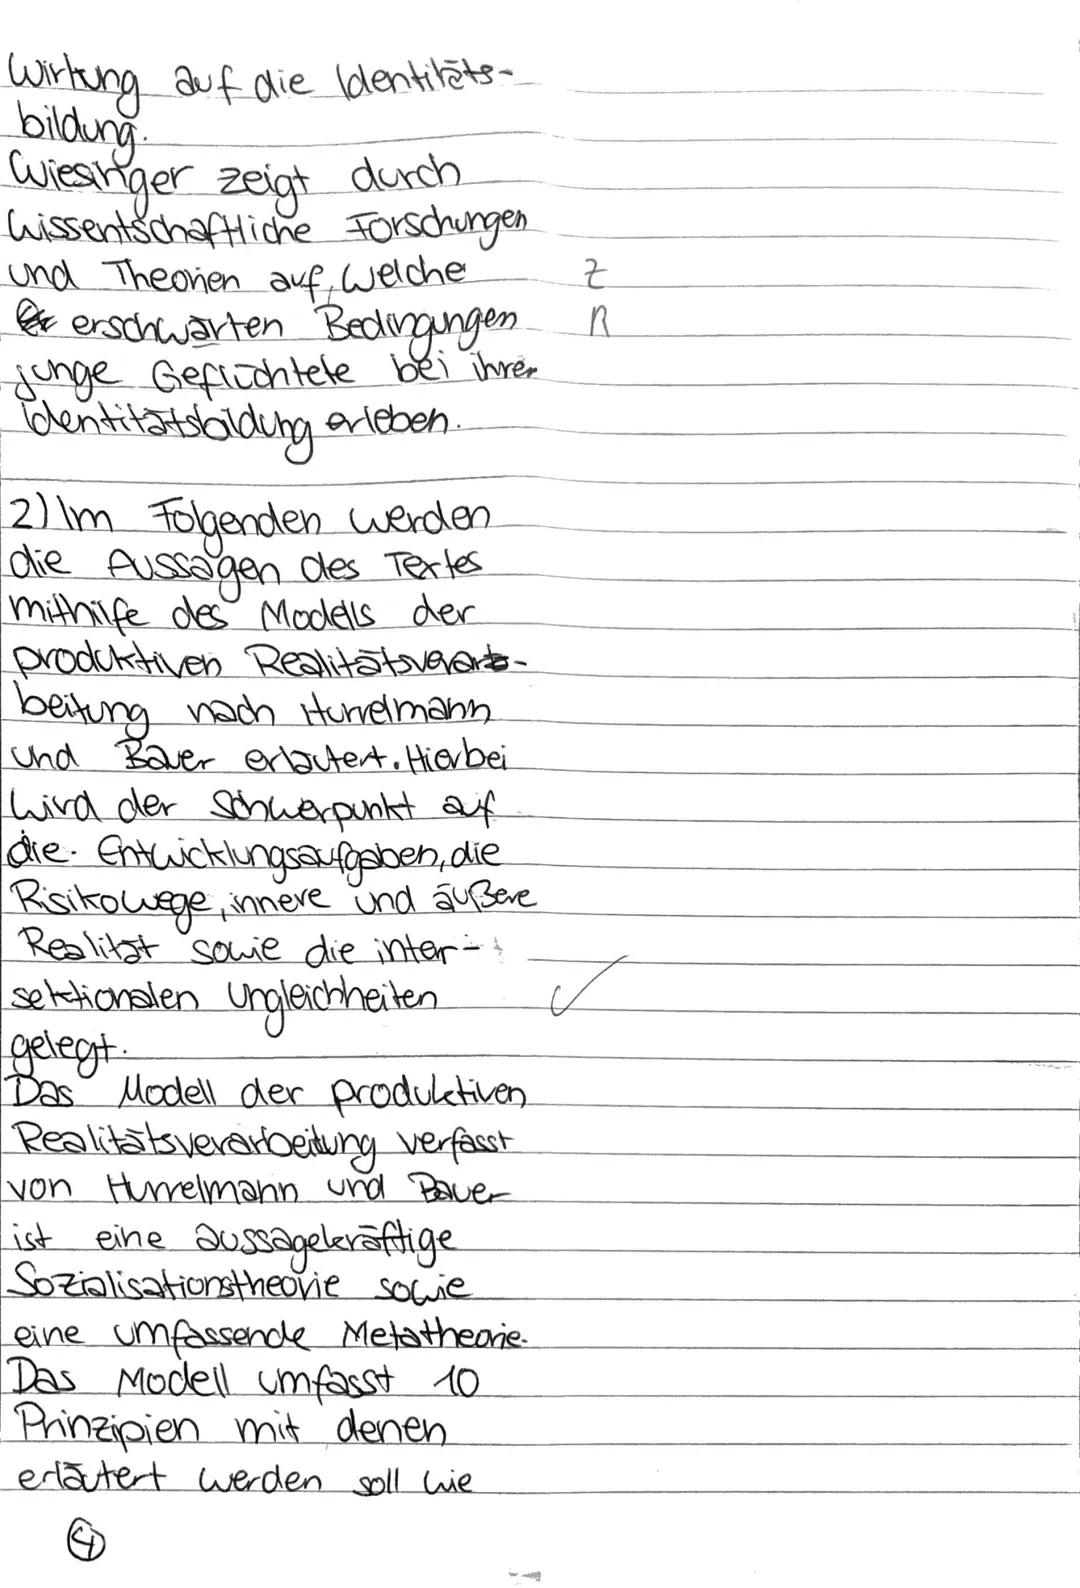 Wirkung auf die Identitäts-
bildung.
Wiesinger zeigt durch
wissentschaftliche Forschungen
und Theorien auf, welche Z
erschwärten Bedingungen R
junge Geflüchtete bei ihrer
Identitätsbildung erleben.
2) Im Folgenden werden
die Aussagen des Textes
mithilfe des Modells der
produktiven Realitätsverar-
beitung nach Hurrelmann
und Bauer erläutert. Hierbei
wird der Schwerpunkt auf
die Entwicklungsaufgaben, die
Risikowege, innere und äußere
Realität sowie die inter-
sektionalen Ungleichheiten ✓
gelegt.
Das Modell der produktiven
Realitätsverarbeitung verfasst
von Hurrelmann und Bauer
ist eine aussagekräftige
Sozialisationstheorie sowie
eine umfassende Metatheorie.
Das Modell umfasst 10
Prinzipien mit denen
erläutert werden soll wie
4